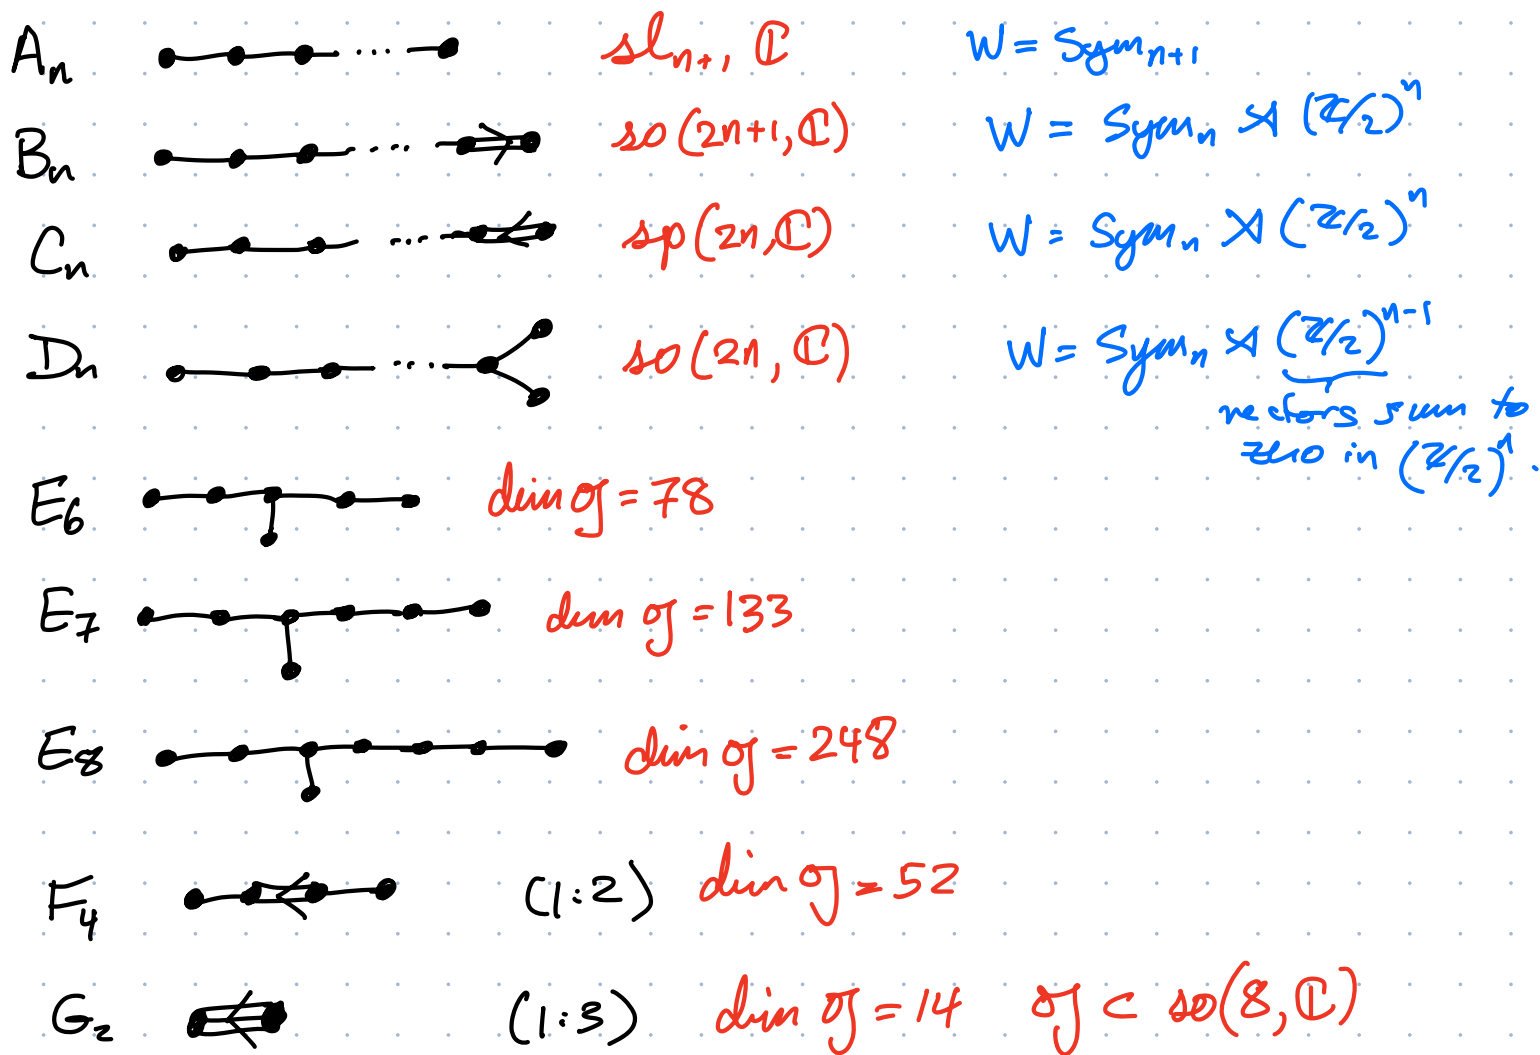 A_n sl_{n+1} ℂ W = Sym_{n+1}
B_n so(2n+1, ℂ) W = Sym_n ⋊ (ℤ/2)^n
C_n sp(2n, ℂ) W = Sym_n ⋊ (ℤ/2)^n
D_n so(2n, ℂ) W = Sym_n ⋊ (ℤ/2)^{n-1}
vectors sum to
zero in (ℤ/2)^n.
E_6 dim 𝔤 = 78
E_7 dim 𝔤 = 133
E_8 dim 𝔤 = 248
F_4 (1:2) dim 𝔤 = 52
G_2 (1:3) dim 𝔤 = 14 𝔤 ⊂ so(8, ℂ)